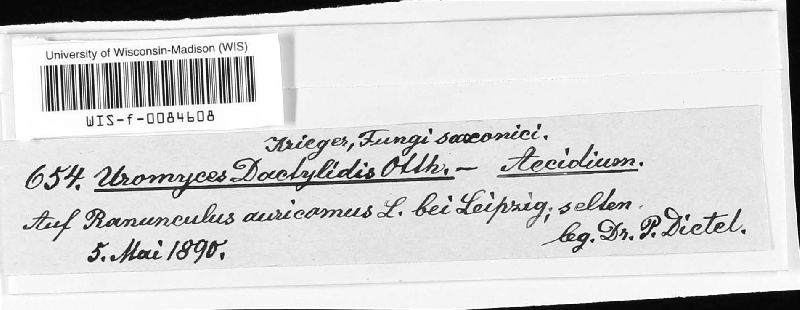 University of Wisconsin-Madison (WIS)
WIS-f-0084608
Krieger, Fungi saxonici.
654. Uromyces Dactylidis Otth. – Aecidium.
Auf Ranunculus auricomus L. bei Leipzig; selten.
5. Mai 1890.
leg. Dr. P. Dietel.